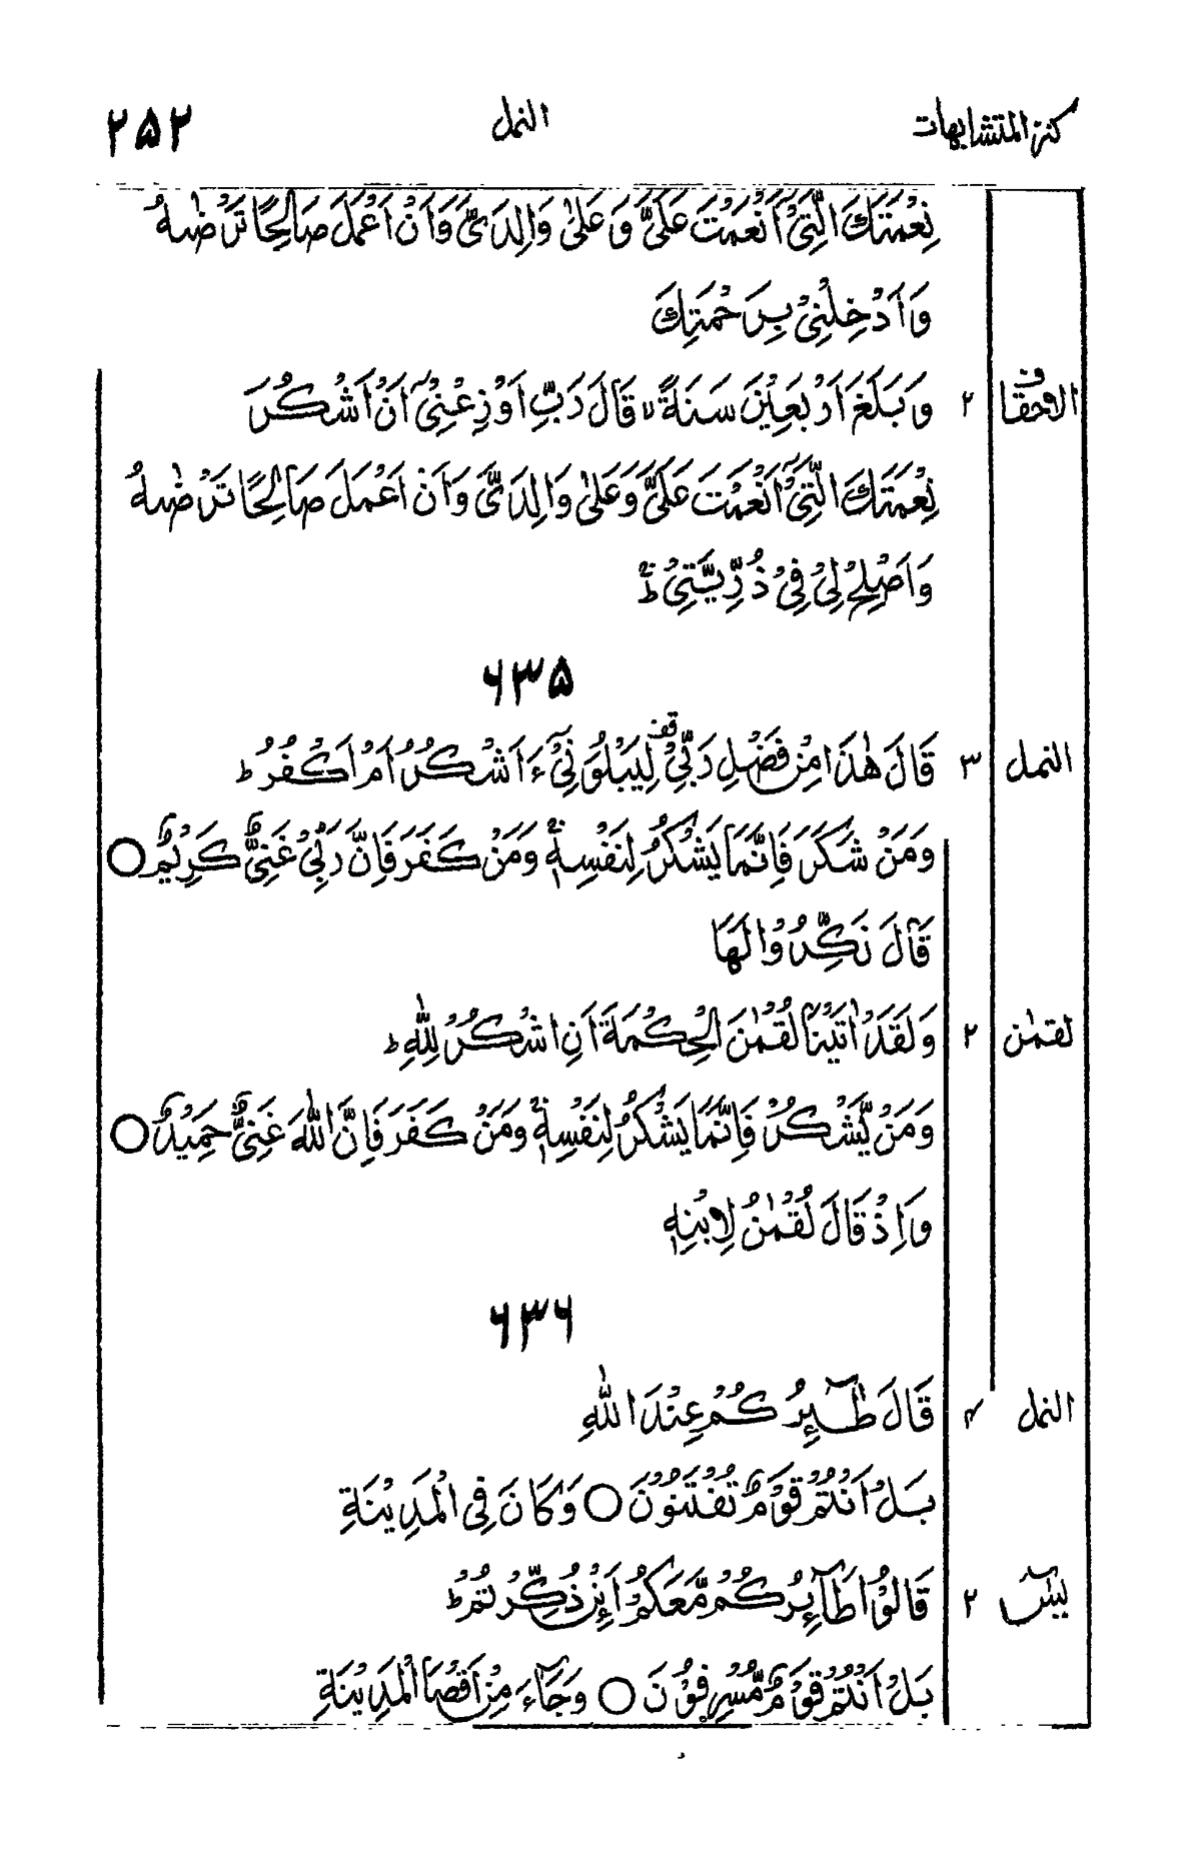 كنز المتشابهات النمل ۲۵۲
نِعْمَتَكَ الَّتِیْۤ اَنْعَمْتَ عَلَیَّ وَ عَلٰی وَالِدَیَّ وَ اَنْ اَعْمَلَ صَالِحًا تَرْضٰىهُ
وَ اَدْخِلْنِیْ بِرَحْمَتِكَ
الاحقاف ۲ وَ بَلَغَ اَرْبَعِیْنَ سَنَةً ۙ قَالَ رَبِّ اَوْزِعْنِیْۤ اَنْ اَشْكُرَ
نِعْمَتَكَ الَّتِیْۤ اَنْعَمْتَ عَلَیَّ وَ عَلٰی وَالِدَیَّ وَ اَنْ اَعْمَلَ صَالِحًا تَرْضٰىهُ
وَ اَصْلِحْ لِیْ فِیْ ذُرِّیَّتِیْ ۚؕ
۶۳۵
النمل ۳ قَالَ هٰذَا مِنْ فَضْلِ رَبِّیْ ۖۗ لِیَبْلُوَنِیْۤ ءَاَشْكُرُ اَمْ اَكْفُرُ ؕ
وَمَنْ شَكَرَ فَاِنَّمَا یَشْكُرُ لِنَفْسِهٖ ۚ وَمَنْ كَفَرَ فَاِنَّ رَبِّیْ غَنِیٌّ كَرِیْمٌ ○
قَالَ نَكِّرُوْا لَهَا
لقمٰن ۲ وَ لَقَدْ اٰتَیْنَا لُقْمٰنَ الْحِكْمَةَ اَنِ اشْكُرْ لِلّٰهِ ؕ
وَمَنْ یَّشْكُرْ فَاِنَّمَا یَشْكُرُ لِنَفْسِهٖ ۚ وَمَنْ كَفَرَ فَاِنَّ اللّٰهَ غَنِیٌّ حَمِیْدٌ ○
وَ اِذْ قَالَ لُقْمٰنُ لِابْنِهٖ
۶۳۶
النمل ۴ قَالَ طٰٓىِٕرُكُمْ عِنْدَ اللّٰهِ
بَلْ اَنْتُمْ قَوْمٌ تُفْتَنُوْنَ ○ وَ كَانَ فِی الْمَدِیْنَةِ
یٰسٓ ۲ قَالُوْا طَآىِٕرُكُمْ مَّعَكُمْ اَىِٕنْ ذُكِّرْتُمْ ؕ
بَلْ اَنْتُمْ قَوْمٌ مُّسْرِفُوْنَ ○ وَ جَآءَ مِنْ اَقْصَا الْمَدِیْنَةِ